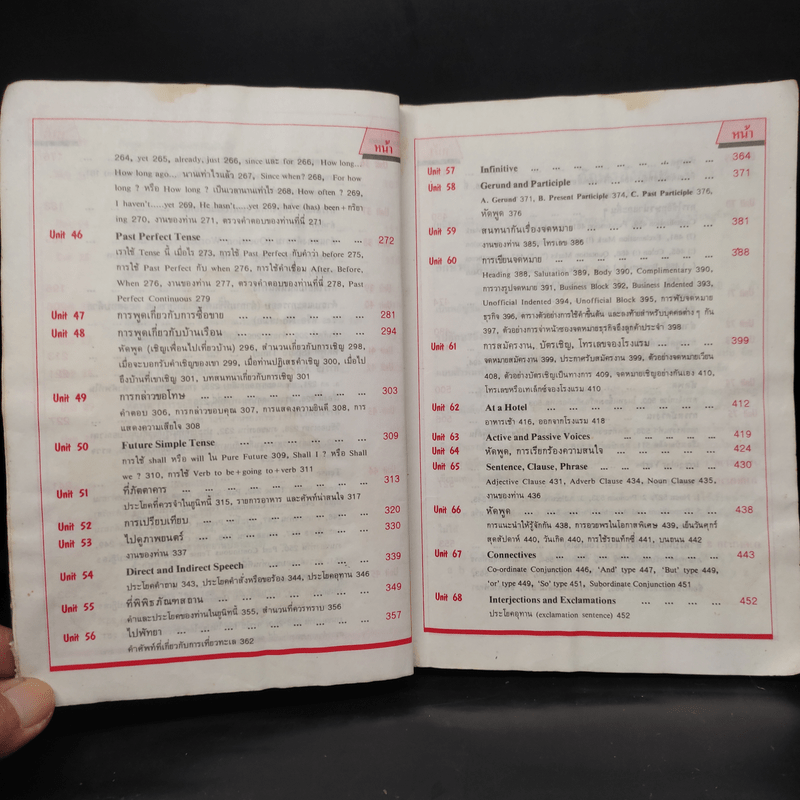 หน้า
264, yet 265, already, just 266, since และ for 266, How long...
How long ago... นานเท่าไรแล้ว 267, Since when? 268, For how
long ? หรือ How long ? เป็นเวลานานเท่าไร 268, How often ? 269,
I haven't.....yet 269, He hasn't.....yet 269, have (has) been + กริยา
ing 270, งานของท่าน 271, ตรวจคำตอบของท่านที่นี่ 271
Unit 46 Past Perfect Tense ... ... ... ... ... ... ... 272
เราใช้ Tense นี้ เมื่อไร 273, การใช้ Past Perfect กับคำว่า before 275,
การใช้ Past Perfect กับ when 276, การใช้คำเชื่อม After, Before,
When 276, งานของท่าน 277, ตรวจคำตอบของท่านที่นี่ 278, Past
Perfect Continuous 279
Unit 47 การพูดเกี่ยวกับการซื้อขาย ... ... ... ... ... ... 281
Unit 48 การพูดเกี่ยวกับบ้านเรือน ... ... ... ... ... ... 294
หัดพูด (เชิญเพื่อนไปเที่ยวบ้าน) 296, สำนวนเกี่ยวกับการเชิญ 298,
เมื่อจะบอกรับคำเชิญของเขา 299, เมื่อท่านปฏิเสธคำเชิญ 300, เมื่อไป
ถึงบ้านที่เขาเชิญ 301, บทสนทนาเกี่ยวกับการเชิญ 301
Unit 49 การกล่าวขอโทษ ... ... ... ... ... ... ... 303
คำตอบ 306, การกล่าวขอบคุณ 307, การแสดงความยินดี 308, การ
แสดงความเสียใจ 308
Unit 50 Future Simple Tense ... ... ... ... ... ... 309
การใช้ shall หรือ will ใน Pure Future 309, Shall I ? หรือ Shall
we ? 310, การใช้ Verb to be + going to + verb 311
Unit 51 ที่ภัตตาคาร ... ... ... ... ... ... ... ... 313
ประโยคที่ควรจำในยูนิทนี้ 315, รายการอาหาร และศัพท์น่าสนใจ 317
Unit 52 การเปรียบเทียบ ... ... ... ... ... ... ... 320
Unit 53 ไปดูภาพยนตร์ ... ... ... ... ... ... ... 330
งานของท่าน 337
Unit 54 Direct and Indirect Speech ... ... ... ... ... 339
ประโยคคำถาม 343, ประโยคคำสั่งหรือขอร้อง 344, ประโยคอุทาน 346
Unit 55 ที่พิพิธภัณฑสถาน ... ... ... ... ... ... ... 349
คำและประโยคของท่านในยูนิทนี้ 355, สำนวนที่ควรทราบ 356
Unit 56 ไปพัทยา ... ... ... ... ... ... ... ... 357
คำศัพท์ที่เกี่ยวกับการเที่ยวทะเล 362
หน้า
Unit 57 Infinitive ... ... ... ... ... ... ... ... 364
Unit 58 Gerund and Participle ... ... ... ... ... 371
A. Gerund 371, B. Present Participle 374, C. Past Participle 376,
หัดพูด 376
Unit 59 สนทนากันเรื่องจดหมาย ... ... ... ... ... ... 381
งานของท่าน 385, โทรเลข 386
Unit 60 การเขียนจดหมาย ... ... ... ... ... ... ... 388
Heading 388, Saluration 389, Body 390, Complimentary 390,
การวางรูปจดหมาย 391, Business Block 392, Business Indented 393,
Unofficial Indented 394, Unofficial Block 395, การพับจดหมาย
ธุรกิจ 396, ตารางตัวอย่างการใช้คำขึ้นต้น และลงท้ายสำหรับบุคคลต่าง ๆ กัน
397, ตัวอย่างการจ่าหน้าซองจดหมายธุรกิจถึงลูกค้าประจำ 398
Unit 61 การสมัครงาน, บัตรเชิญ, โทรเลขจองโรงแรม ... ... ... 399
จดหมายสมัครงาน 399, ประกาศรับสมัครงาน 399, ตัวอย่างจดหมายเวียน
408, ตัวอย่างบัตรเชิญเป็นทางการ 409, จดหมายเชิญอย่างกันเอง 410,
โทรเลขหรือเทเล็กซ์จองโรงแรม 410
Unit 62 At a Hotel ... ... ... ... ... ... ... 412
อาหารเช้า 416, ออกจากโรงแรม 418
Unit 63 Active and Passive Voices ... ... ... ... ... 419
Unit 64 หัดพูด, การเรียกร้องความสนใจ ... ... ... ... ... 424
Unit 65 Sentence, Clause, Phrase ... ... ... ... ... 430
Adjective Clause 431, Adverb Clause 434, Noun Clause 435,
งานของท่าน 436
Unit 66 หัดพูด ... ... ... ... ... ... ... ... 438
การแนะนำให้รู้จักกัน 438, การอวยพรในโอกาสพิเศษ 439, เย็นวันศุกร์
สุดสัปดาห์ 440, วันเกิด 440, การใช้รถแท็กซี่ 441, บนถนน 442
Unit 67 Connectives ... ... ... ... ... ... ... 443
Co-ordinate Conjunction 446, 'And' type 447, 'But' type 449,
'or' type 449, 'So' type 451, Subordinate Conjunction 451
Unit 68 Interjections and Exclamations ... ... ... ... 452
ประโยคอุทาน (exclamation sentence) 452